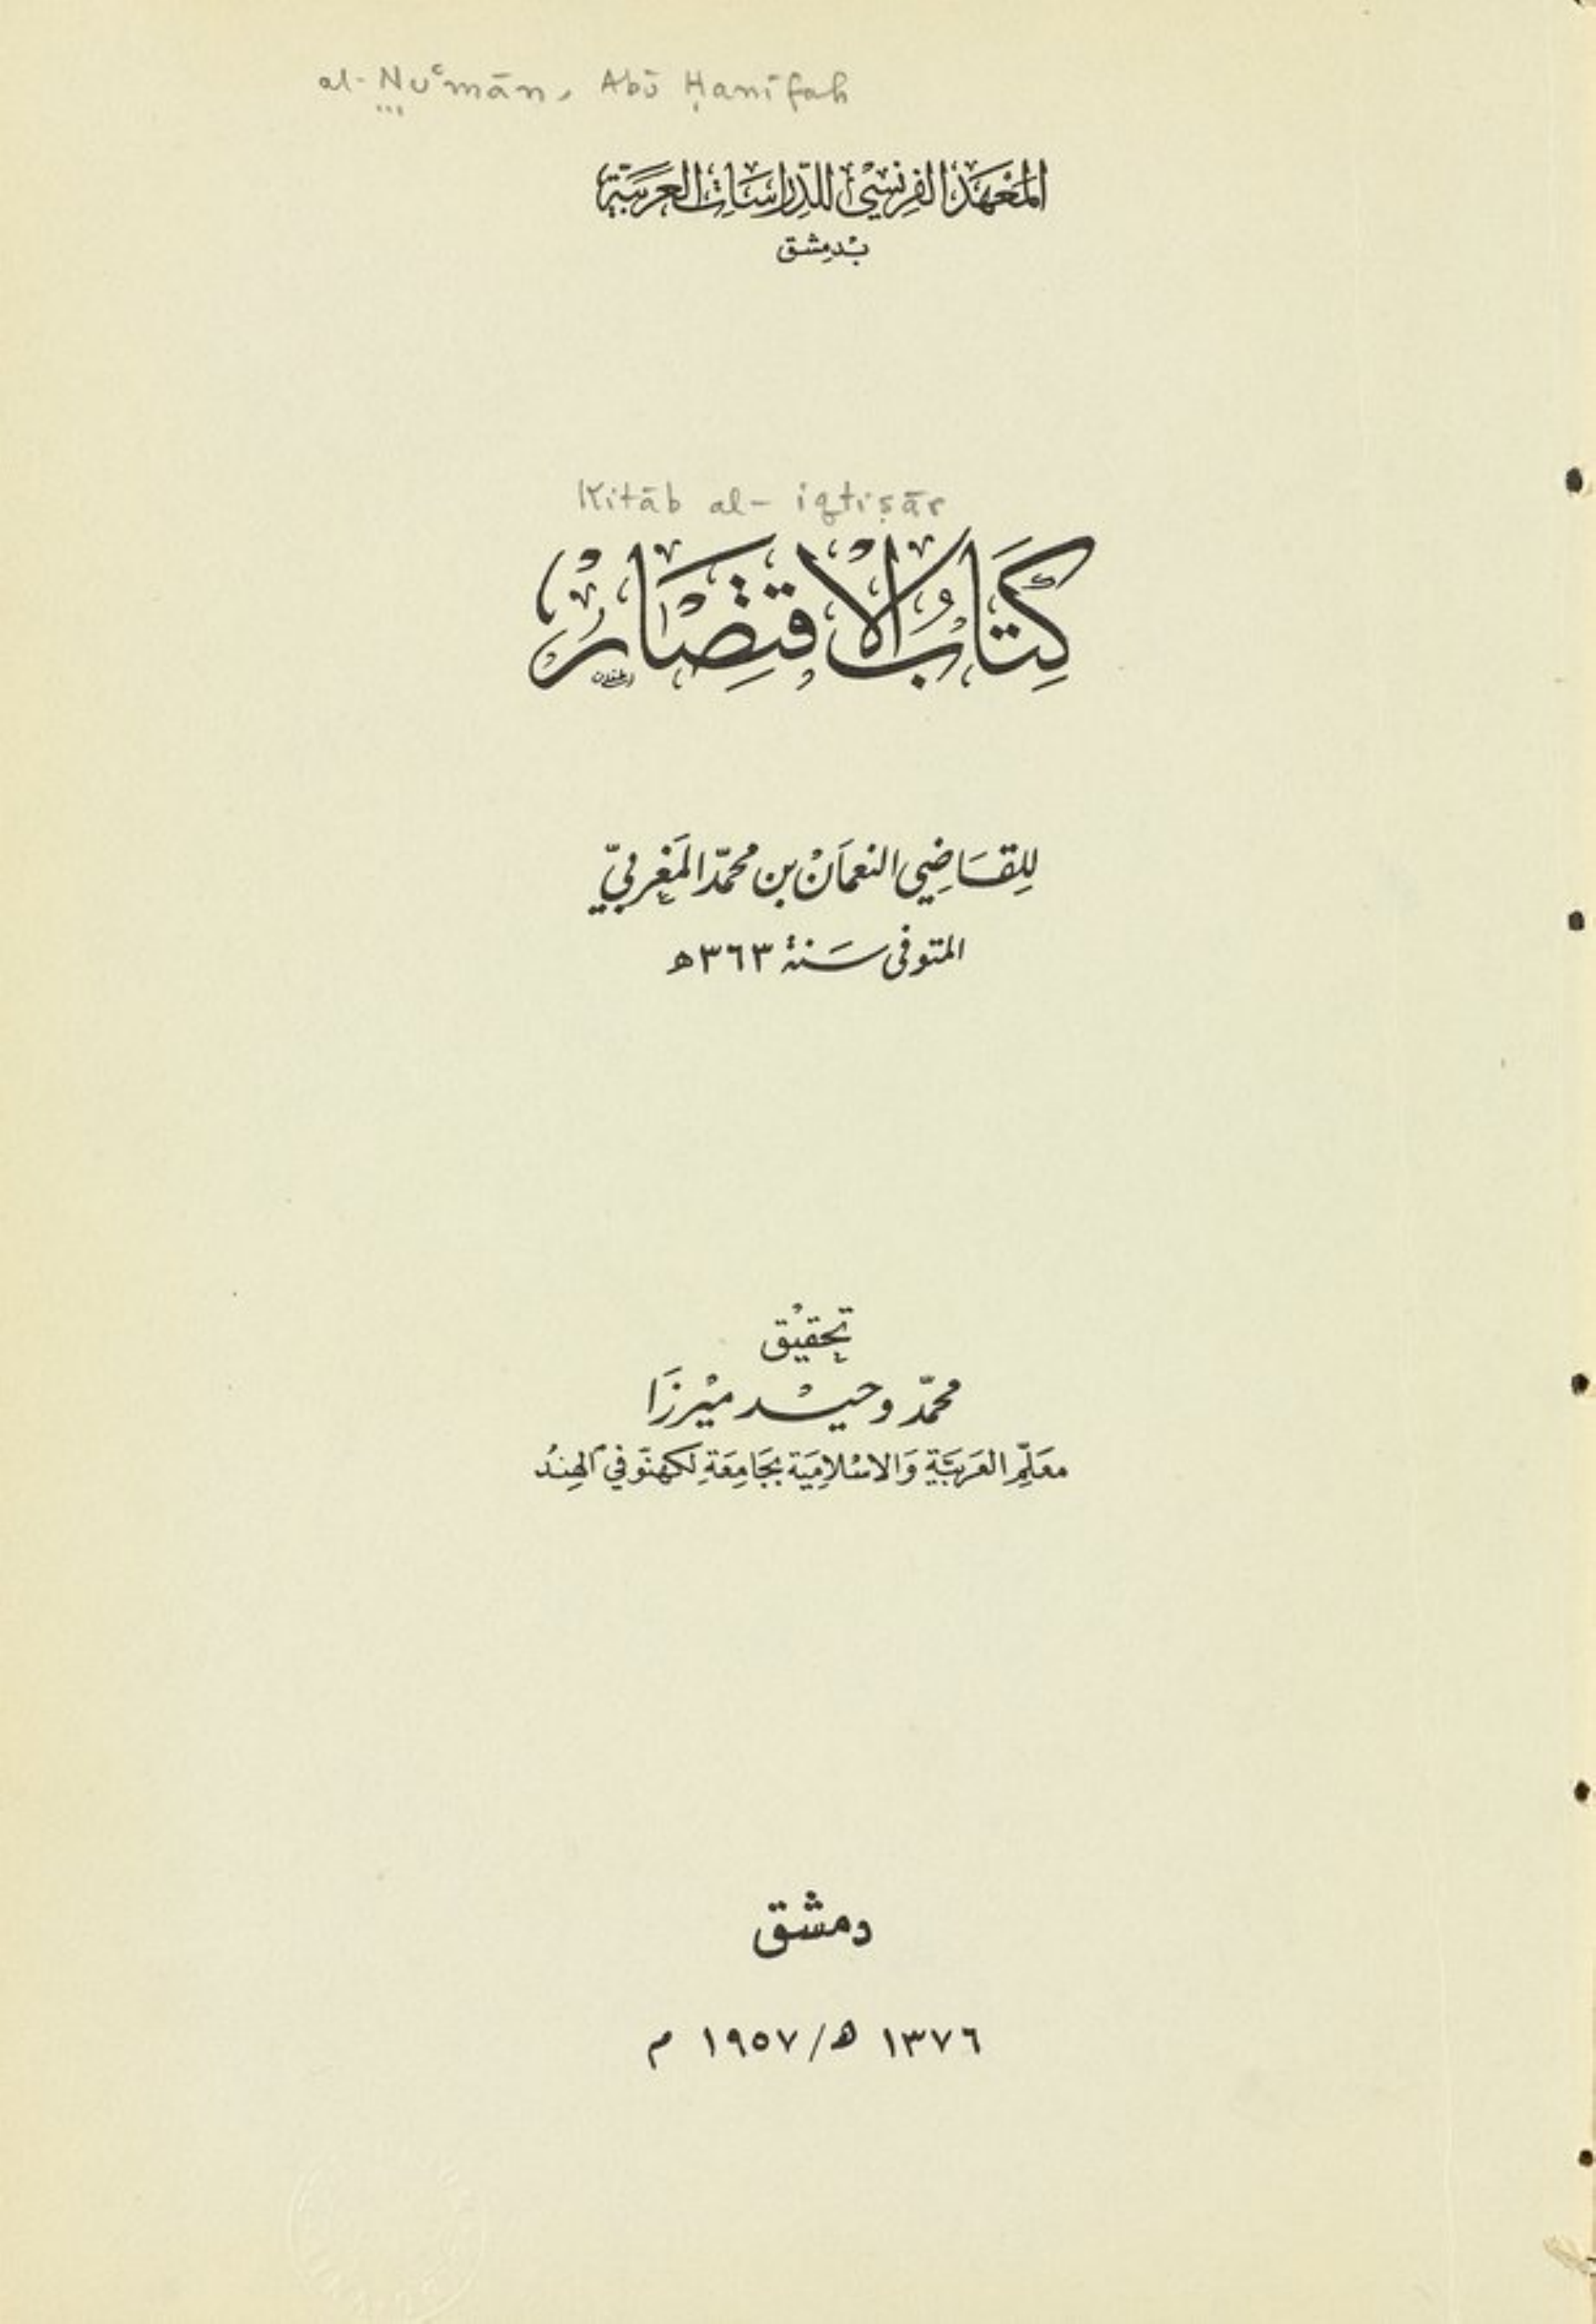 al-Nuʿmān, Abū Ḥanīfah
المَعْهَد الفِرنسِيْ للدِّراسَات العَرَبيَّة
بْدمِشق
Kitāb al-iqtiṣār
كِتَابُ الاقتِصَار
لِلقَاضِي النعمَانْ بن محمّد المَغربيّ
المتوفى سَنة ٣٦٣ه
تحقيْق
محمّد وحيْد ميْرزَا
معَلِّم العَرَبيَّة وَالاسْلاميَة بجَامِعَة لكهنوّ في الهِندْ
دمشق
١٣٧٦ ه/١٩٥٧ م